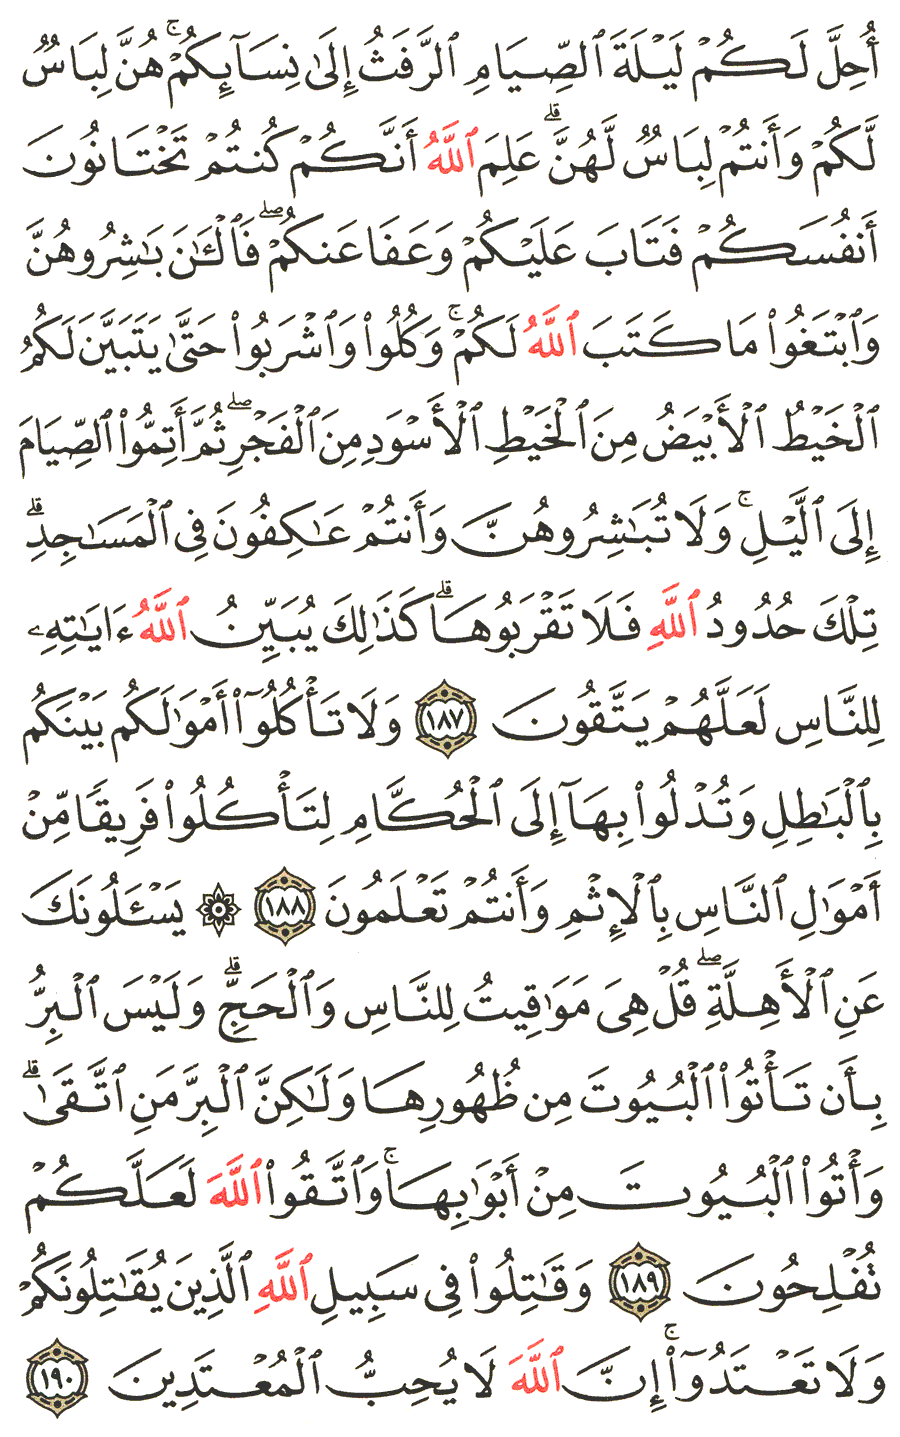 أُحِلَّ لَكُمۡ لَيۡلَةَ ٱلصِّيَامِ ٱلرَّفَثُ إِلَىٰ نِسَآئِكُمۡۚ هُنَّ لِبَاسٞ
لَّكُمۡ وَأَنتُمۡ لِبَاسٞ لَّهُنَّۗ عَلِمَ ٱللَّهُ أَنَّكُمۡ كُنتُمۡ تَخۡتَانُونَ
أَنفُسَكُمۡ فَتَابَ عَلَيۡكُمۡ وَعَفَا عَنكُمۡۖ فَٱلۡـَٰٔنَ بَٰشِرُوهُنَّ
وَٱبۡتَغُواْ مَا كَتَبَ ٱللَّهُ لَكُمۡۚ وَكُلُواْ وَٱشۡرَبُواْ حَتَّىٰ يَتَبَيَّنَ لَكُمُ
ٱلۡخَيۡطُ ٱلۡأَبۡيَضُ مِنَ ٱلۡخَيۡطِ ٱلۡأَسۡوَدِ مِنَ ٱلۡفَجۡرِۖ ثُمَّ أَتِمُّواْ ٱلصِّيَامَ
إِلَى ٱلَّيۡلِۚ وَلَا تُبَٰشِرُوهُنَّ وَأَنتُمۡ عَٰكِفُونَ فِي ٱلۡمَسَٰجِدِۗ
تِلۡكَ حُدُودُ ٱللَّهِ فَلَا تَقۡرَبُوهَاۗ كَذَٰلِكَ يُبَيِّنُ ٱللَّهُ ءَايَٰتِهِۦ
لِلنَّاسِ لَعَلَّهُمۡ يَتَّقُونَ ١٨٧ وَلَا تَأۡكُلُوٓاْ أَمۡوَٰلَكُم بَيۡنَكُم
بِٱلۡبَٰطِلِ وَتُدۡلُواْ بِهَآ إِلَى ٱلۡحُكَّامِ لِتَأۡكُلُواْ فَرِيقٗا مِّنۡ
أَمۡوَٰلِ ٱلنَّاسِ بِٱلۡإِثۡمِ وَأَنتُمۡ تَعۡلَمُونَ ١٨٨ ۞ يَسۡـَٔلُونَكَ
عَنِ ٱلۡأَهِلَّةِۖ قُلۡ هِيَ مَوَٰقِيتُ لِلنَّاسِ وَٱلۡحَجِّۗ وَلَيۡسَ ٱلۡبِرُّ
بِأَن تَأۡتُواْ ٱلۡبُيُوتَ مِن ظُهُورِهَا وَلَٰكِنَّ ٱلۡبِرَّ مَنِ ٱتَّقَىٰۗ
وَأۡتُواْ ٱلۡبُيُوتَ مِنۡ أَبۡوَٰبِهَاۚ وَٱتَّقُواْ ٱللَّهَ لَعَلَّكُمۡ
تُفۡلِحُونَ ١٨٩ وَقَٰتِلُواْ فِي سَبِيلِ ٱللَّهِ ٱلَّذِينَ يُقَٰتِلُونَكُمۡ
وَلَا تَعۡتَدُوٓاْۚ إِنَّ ٱللَّهَ لَا يُحِبُّ ٱلۡمُعۡتَدِينَ ١٩٠